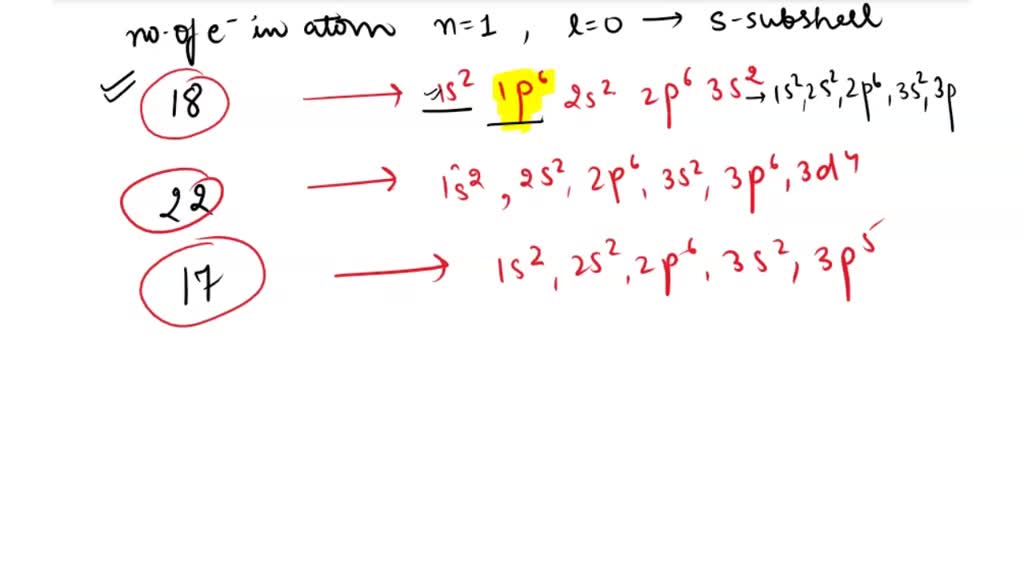 no. of e⁻ in atom n=1 , l=0 → s-subshell
18 → 1s² 1p⁶ 2s² 2p⁶ 3s² → 1s², 2s², 2p⁶, 3s², 3p
22 → 1s², 2s², 2p⁶, 3s², 3p⁶, 3d⁴
17 → 1s², 2s², 2p⁶, 3s², 3p⁵